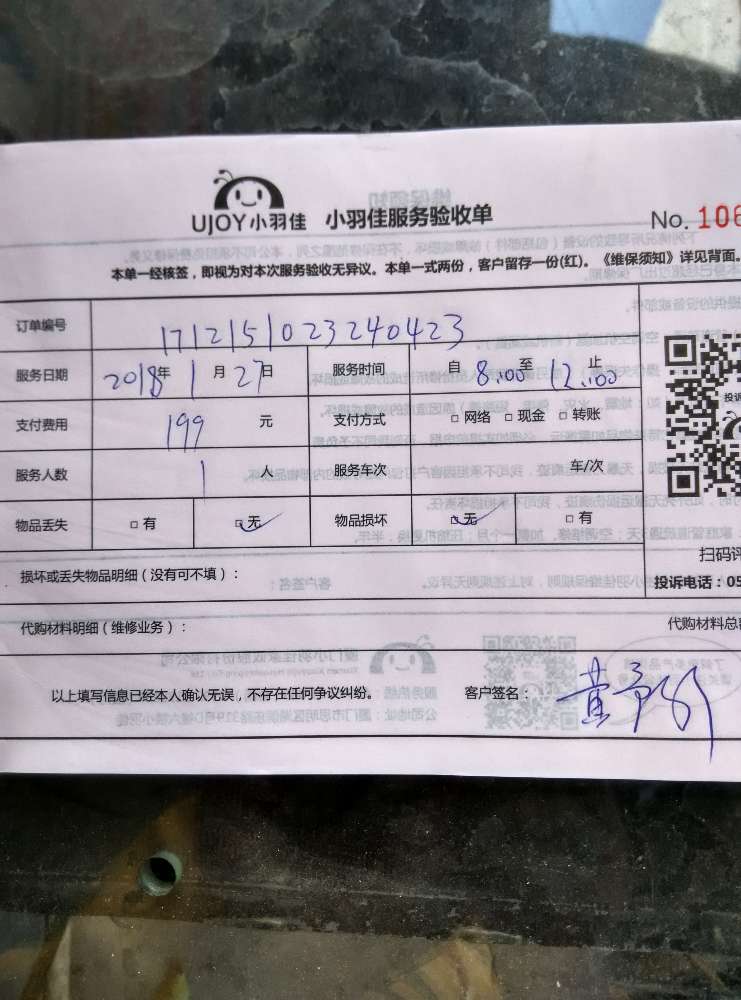 UJOY小羽佳 小羽佳服务验收单 No. 106
本单一经核签，即视为对本次服务验收无异议。本单一式两份，客户留存一份(红)。《维保须知》详见背面。
订单编号 171215102324 0423
服务日期 2018年 1 月 27日 服务时间 自 8:00 至 12:00 止
支付费用 199 元 支付方式 □ 网络 □ 现金 □ 转账
投诉
服务人数 1 人 服务车次 车/次
物品丢失 □ 有 □ 无 物品损坏 □ 无 □ 有
扫码评
损坏或丢失物品明细（没有可不填）：
投诉电话：05
代购材料明细（维修业务）： 代购材料总
以上填写信息已经本人确认无误，不存在任何争议纠纷。 客户签名：黄